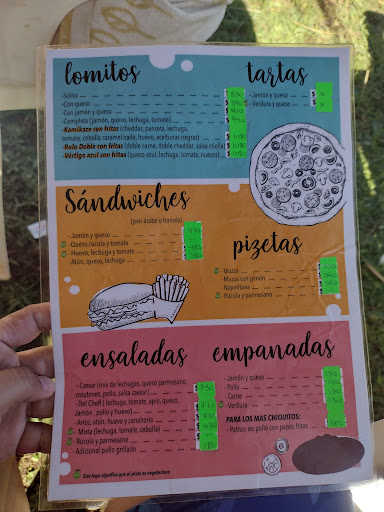 lomitos
-Solito
-Con queso
-Con jamón y queso
-Completa (jamón, queso, lechuga, tomate)
-Kamikaze con fritas (cheddar, panceta, lechuga,
tomate, cebolla caramelizada, huevo, aceitunas negras)
-Rula Doble con fritas (doble carne, doble cheddar, salsa criolla)
-Vértigo azul con fritas (queso azul, lechuga, tomate, nueces)
tartas
- Jamón y queso
- Verdura y queso
Sándwiches
(pan árabe o francés)
- Jamón y queso
- Queso, rúcula y tomate
- Huevo, lechuga y tomate
- Atún, queso, lechuga
pizetas
- Muzza
- Muzza con jamón
- Napolitana
- Rúcula y parmesano
ensaladas
- Caesar (mix de lechugas, queso parmesano,
croutones, pollo, salsa caesar)
- Del Chef! ( lechuga, tomate, apio, queso,
Jamón , pollo y huevo)
- Arroz, atún, huevo y zanahoria
- Mixta (lechuga, tomate, cebolla)
- Rúcula y parmesano
- Adicional pollo grillado
Este logo significa que el plato es vegetariano
empanadas
- Jamón y queso
- Pollo
- Carne
- Verdura
PARA LOS MAS CHIQUITOS:
- Patitas de pollo con papas fritas